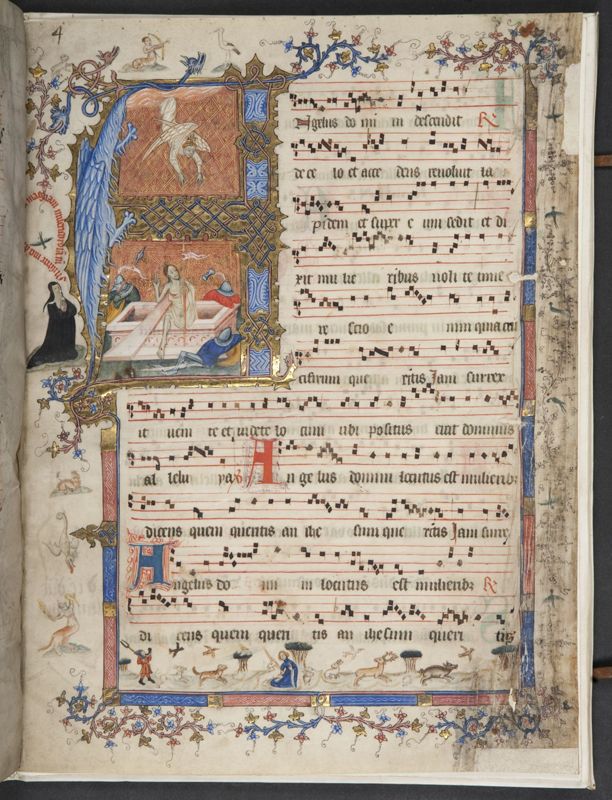 4
Angelus do mi ni descendit R
de ce lo et acce dens revoluit la
pidem et super e um sedit et di
xit mu lie ribus noli te time
re scio e nim quia cru
cifixum que ritis Jam surrex
it veni te et videte lo cum ubi positus erat dominus
al lelu ya
An ge lus domini locutus est mulierib
dicens quem queritis an ihe sum que ritis Jam surre
Angelus do mi ni locutus est mulierib R
di cens quem queri tis an ihesum queri tis